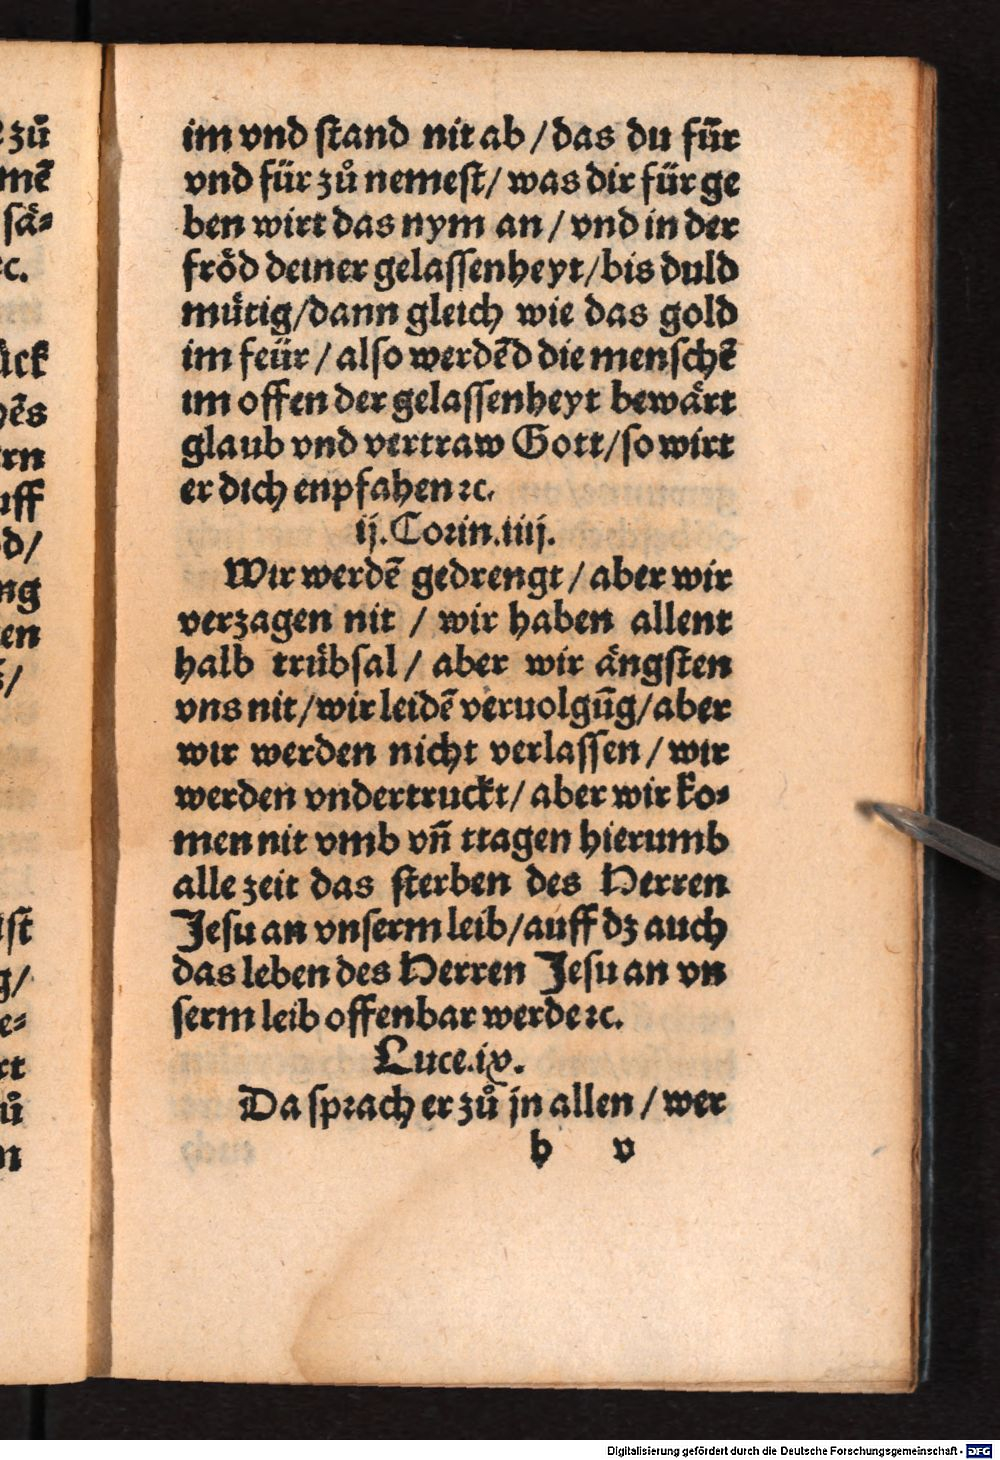 im vnd stand nit ab / das du für
vnd für zů nemest / was dir für ge
ben wirt das nym an / vnd in der
frőd deiner gelassenheyt / bis duld
mütig / dann gleich wie das gold
im feür / also werdēd die menschē
im offen der gelassenheyt bewärt
glaub vnd vertraw Gott / so wirt
er dich enpfahen ꝛc.
ij. Corin. iiij.
Wir werdē gedrengt / aber wir
verzagen nit / wir haben allent
halb trübsal / aber wir ängsten
vns nit / wir leidē veruolgūg / aber
wir werden nicht verlassen / wir
werden vndertruckt / aber wir ko⸗
men nit vmb vn̄ tragen hierumb
alle zeit das sterben des Herren
Jesu an vnserm leib / auff dz auch
das leben des Herren Jesu an vn
serm leib offenbar werde ꝛc.
Luce. ix.
Da sprach er zů jn allen / wer
b v
Digitalisierung gefördert durch die Deutsche Forschungsgemeinschaft - DFG